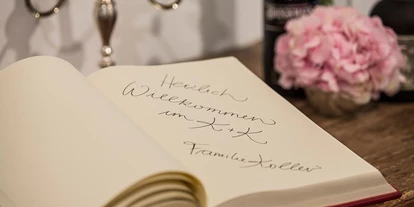 Herzlich
Willkommen
im K + K
Familie Koller